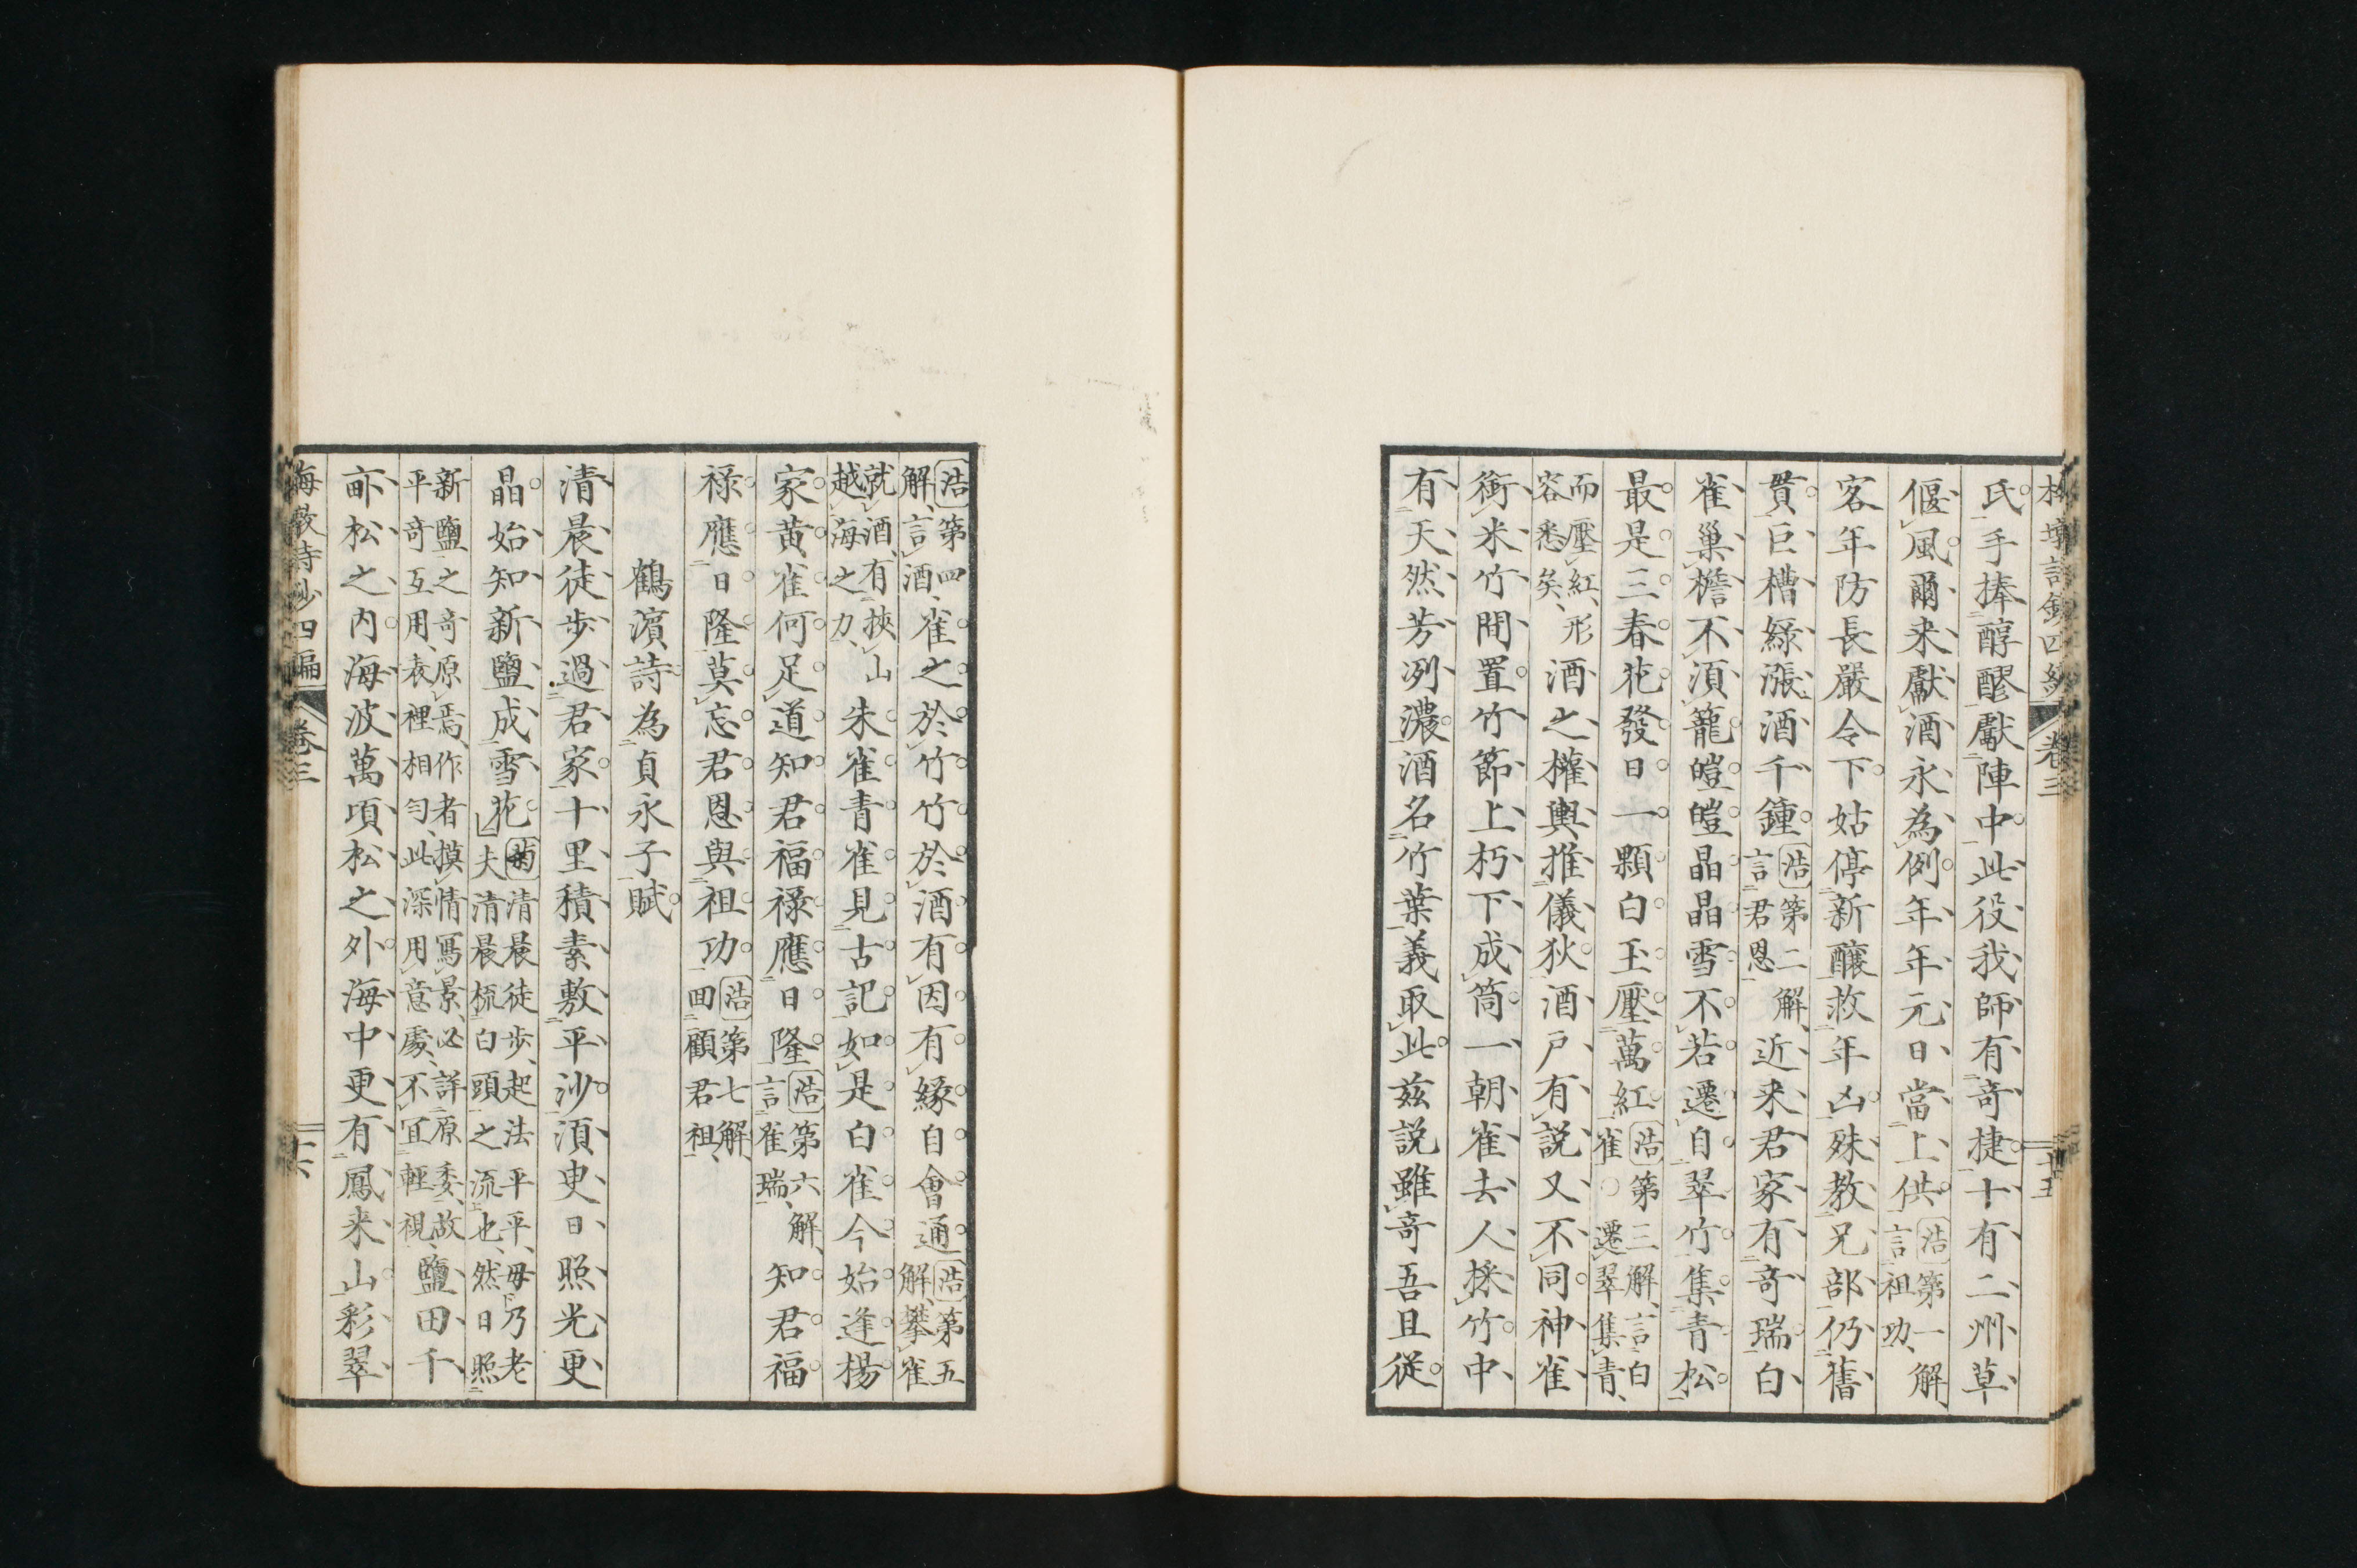 卷三 十五
氏手捧醇醪獻陣中此役我師有奇捷十有二州草
偃風爾来獻酒永為例年年元日當上供浩第一解言祖功
客年防長嚴令下姑停新釀救年凶殊教兄部仍舊
貫巨槽綠漲酒千鐘浩第二解言君恩近来君家有奇瑞白
雀巢檐不須籠皚皚晶晶雪不若遷自翠竹集青松
最是三春花發日一顆白玉壓萬紅浩第三解言白雀遷翠集青
而壓紅形容悉矣酒之權輿推儀狄酒戶有說又不同神雀
銜米竹間置竹節上朽下成筒一朝雀去人採竹中
有天然芳冽濃酒名竹葉義取此茲說雖奇吾且從
浩第四解言酒雀之於竹竹於酒有因有緣自會通浩第五解攀雀
就酒有挾山越海之力朱雀青雀見古記如是白雀今始逢楊
家黃雀何足道知君福祿應日隆浩第六解言雀瑞知君福
祿應日隆莫忘君恩與祖功浩第七解回顧君祖
鶴濱詩為貞永子賦
清晨徒步過君家十里積素敷平沙須臾日照光更
晶始知新鹽成雪花菊清晨徒步起法平平毋乃老夫清晨梳白頭之流也然日照
新鹽之奇原焉作者摸情寫景必詳原委故平奇互用表裡相勻此深用意處不宜輕視鹽田千
畝松之內海波萬頃松之外海中更有鳳来山彩翠
海散詩鈔四編 卷三 十六